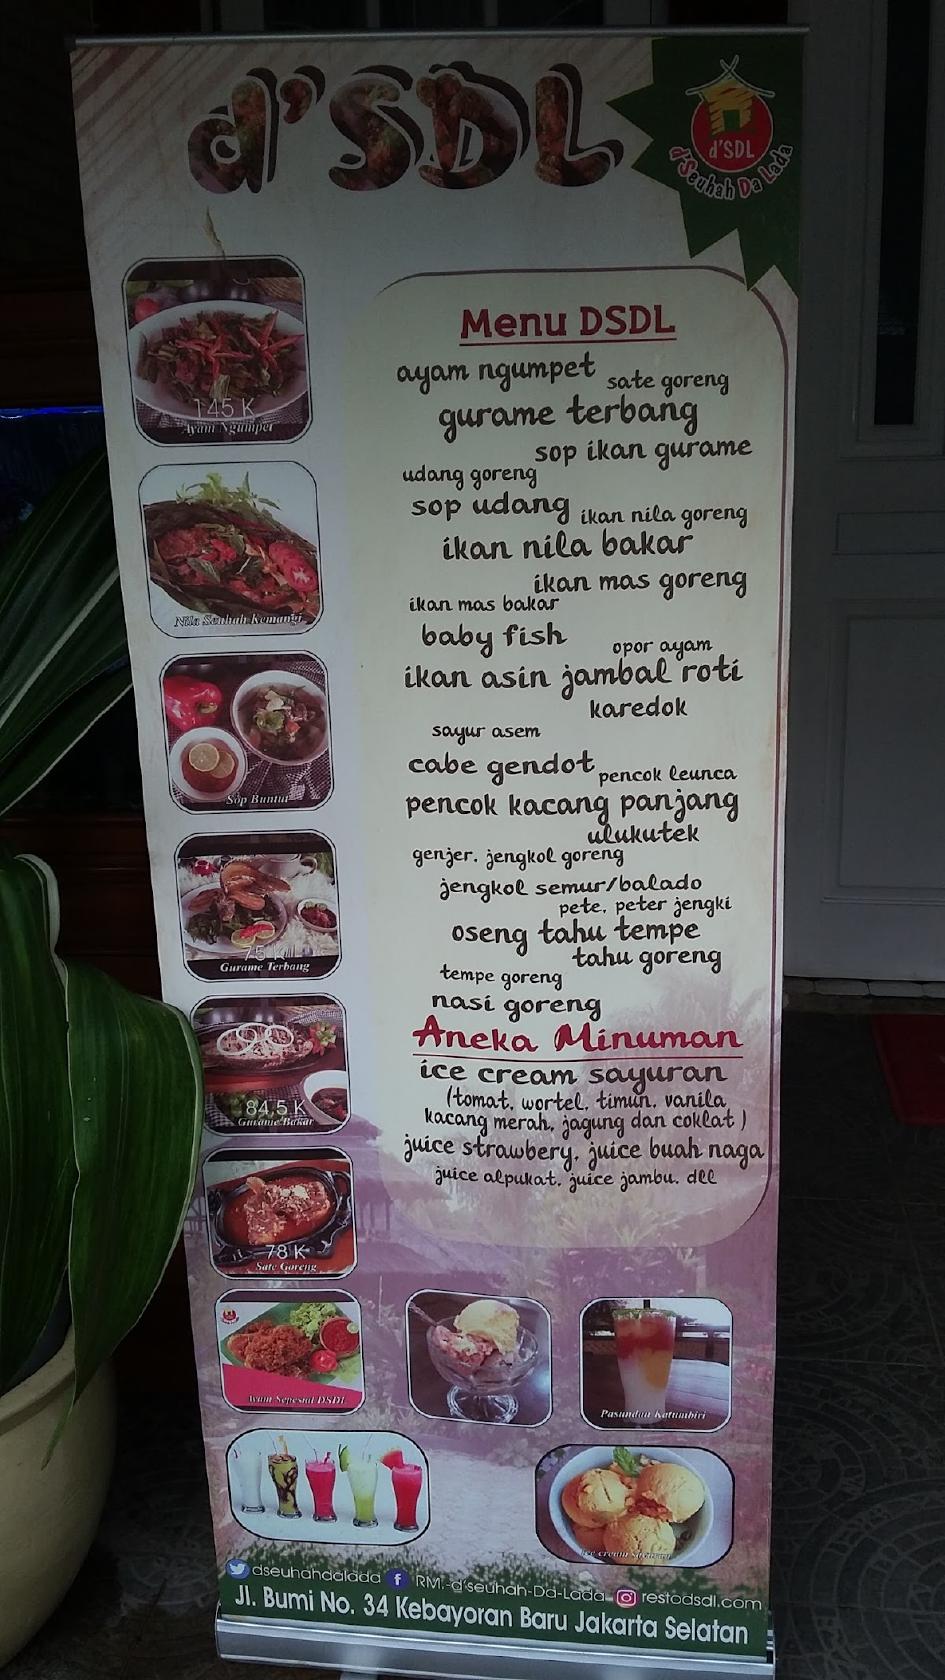 d'SDL
d'SDL
d'Seuhah Da Lada
145 K
Ayam Ngumpet
Nila Seuhah Kemangi
Sop Buntut
75 K
Gurame Terbang
84,5 K
Gurame Bakar
78 K
Sate Goreng
Ayam Spesial DSDL
Menu DSDL
ayam ngumpet sate goreng
gurame terbang
sop ikan gurame
udang goreng
sop udang ikan nila goreng
ikan nila bakar
ikan mas goreng
ikan mas bakar
baby fish opor ayam
ikan asin jambal roti
karedok
sayur asem
cabe gendot pencok leunca
pencok kacang panjang
ulukutek
genjer, jengkol goreng
jengkol semur/balado
pete, peter jengki
oseng tahu tempe
tahu goreng
tempe goreng
nasi goreng
Aneka Minuman
ice cream sayuran
(tomat, wortel, timun, vanila
kacang merah, jagung dan coklat )
juice strawbery, juice buah naga
juice alpukat, juice jambu, dll
Pasundan Katumbiri
ice cream
dseuhahdalada RM.-d'seuhah-Da-Lada restodsdl.com
Jl. Bumi No. 34 Kebayoran Baru Jakarta Selatan